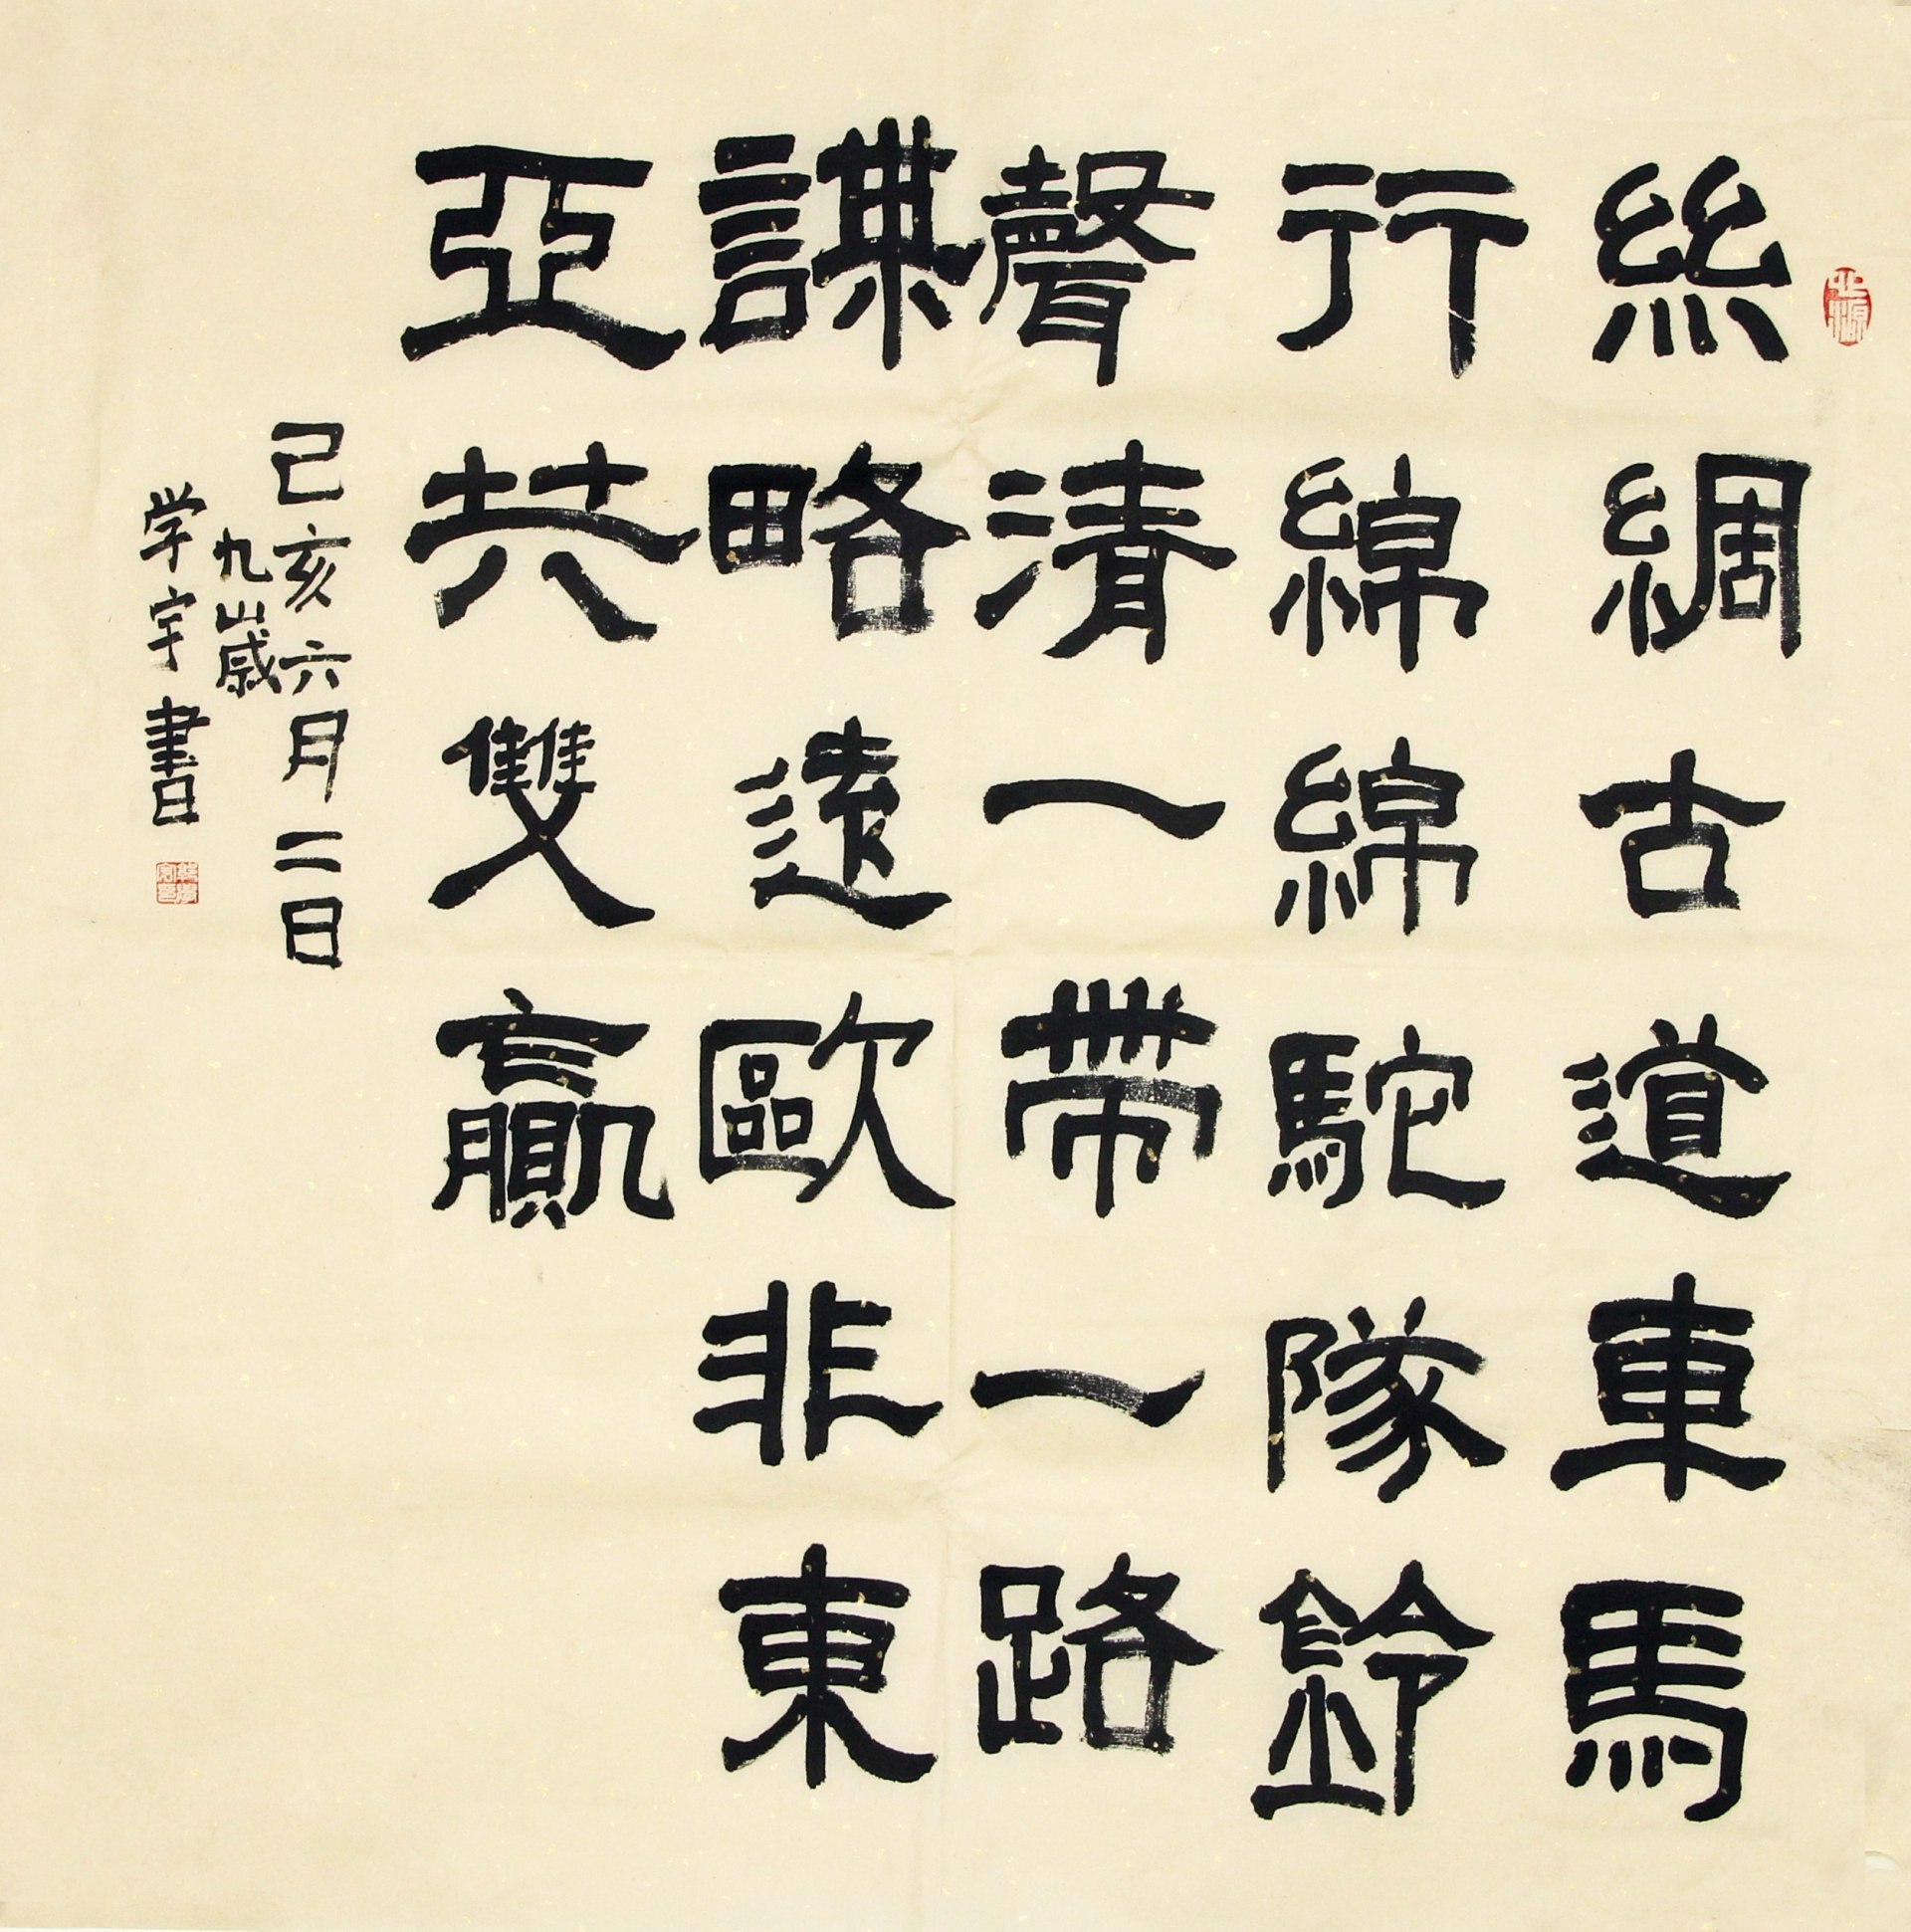 絲綢古道車馬
行綿綿駝隊鈴
聲清一帶一路
謀略遠歐非東
亞共雙贏
己亥六月二日
九歲
学宇書